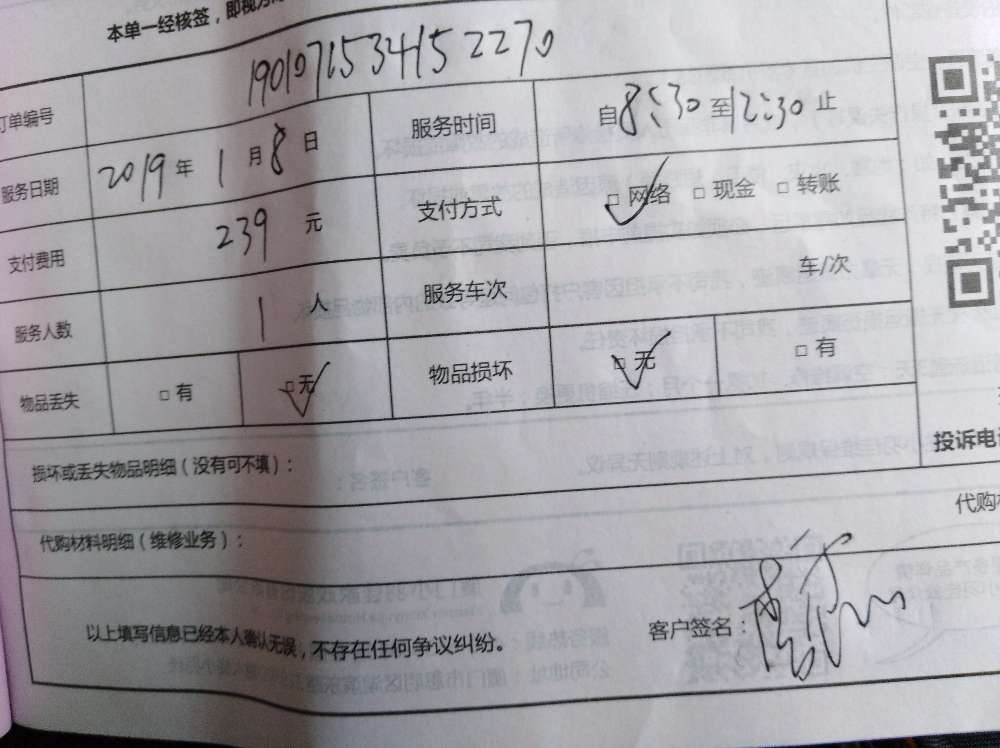 本单一经核签，即视为
订单编号 1901071534152270
服务日期 2019年1月8日 服务时间 自8:30至12:30止
支付费用 239元 支付方式 □网络 □现金 □转账
服务人数 1人 服务车次 车/次
物品丢失 □有 □无 物品损坏 □无 □有
投诉电
损坏或丢失物品明细（没有可不填）：
代购
代购材料明细（维修业务）：
以上填写信息已经本人确认无误，不存在任何争议纠纷。 客户签名：